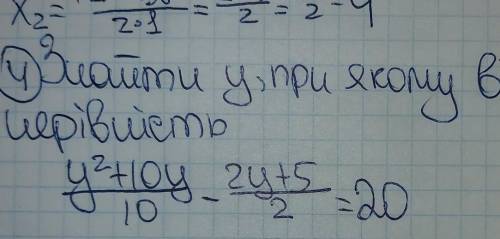 x₂ = 2·1 = 2 = 2 - 4
4) Знайти y, при якому в
нерівність
y²+10y/10 - 2y+5/2 = 20